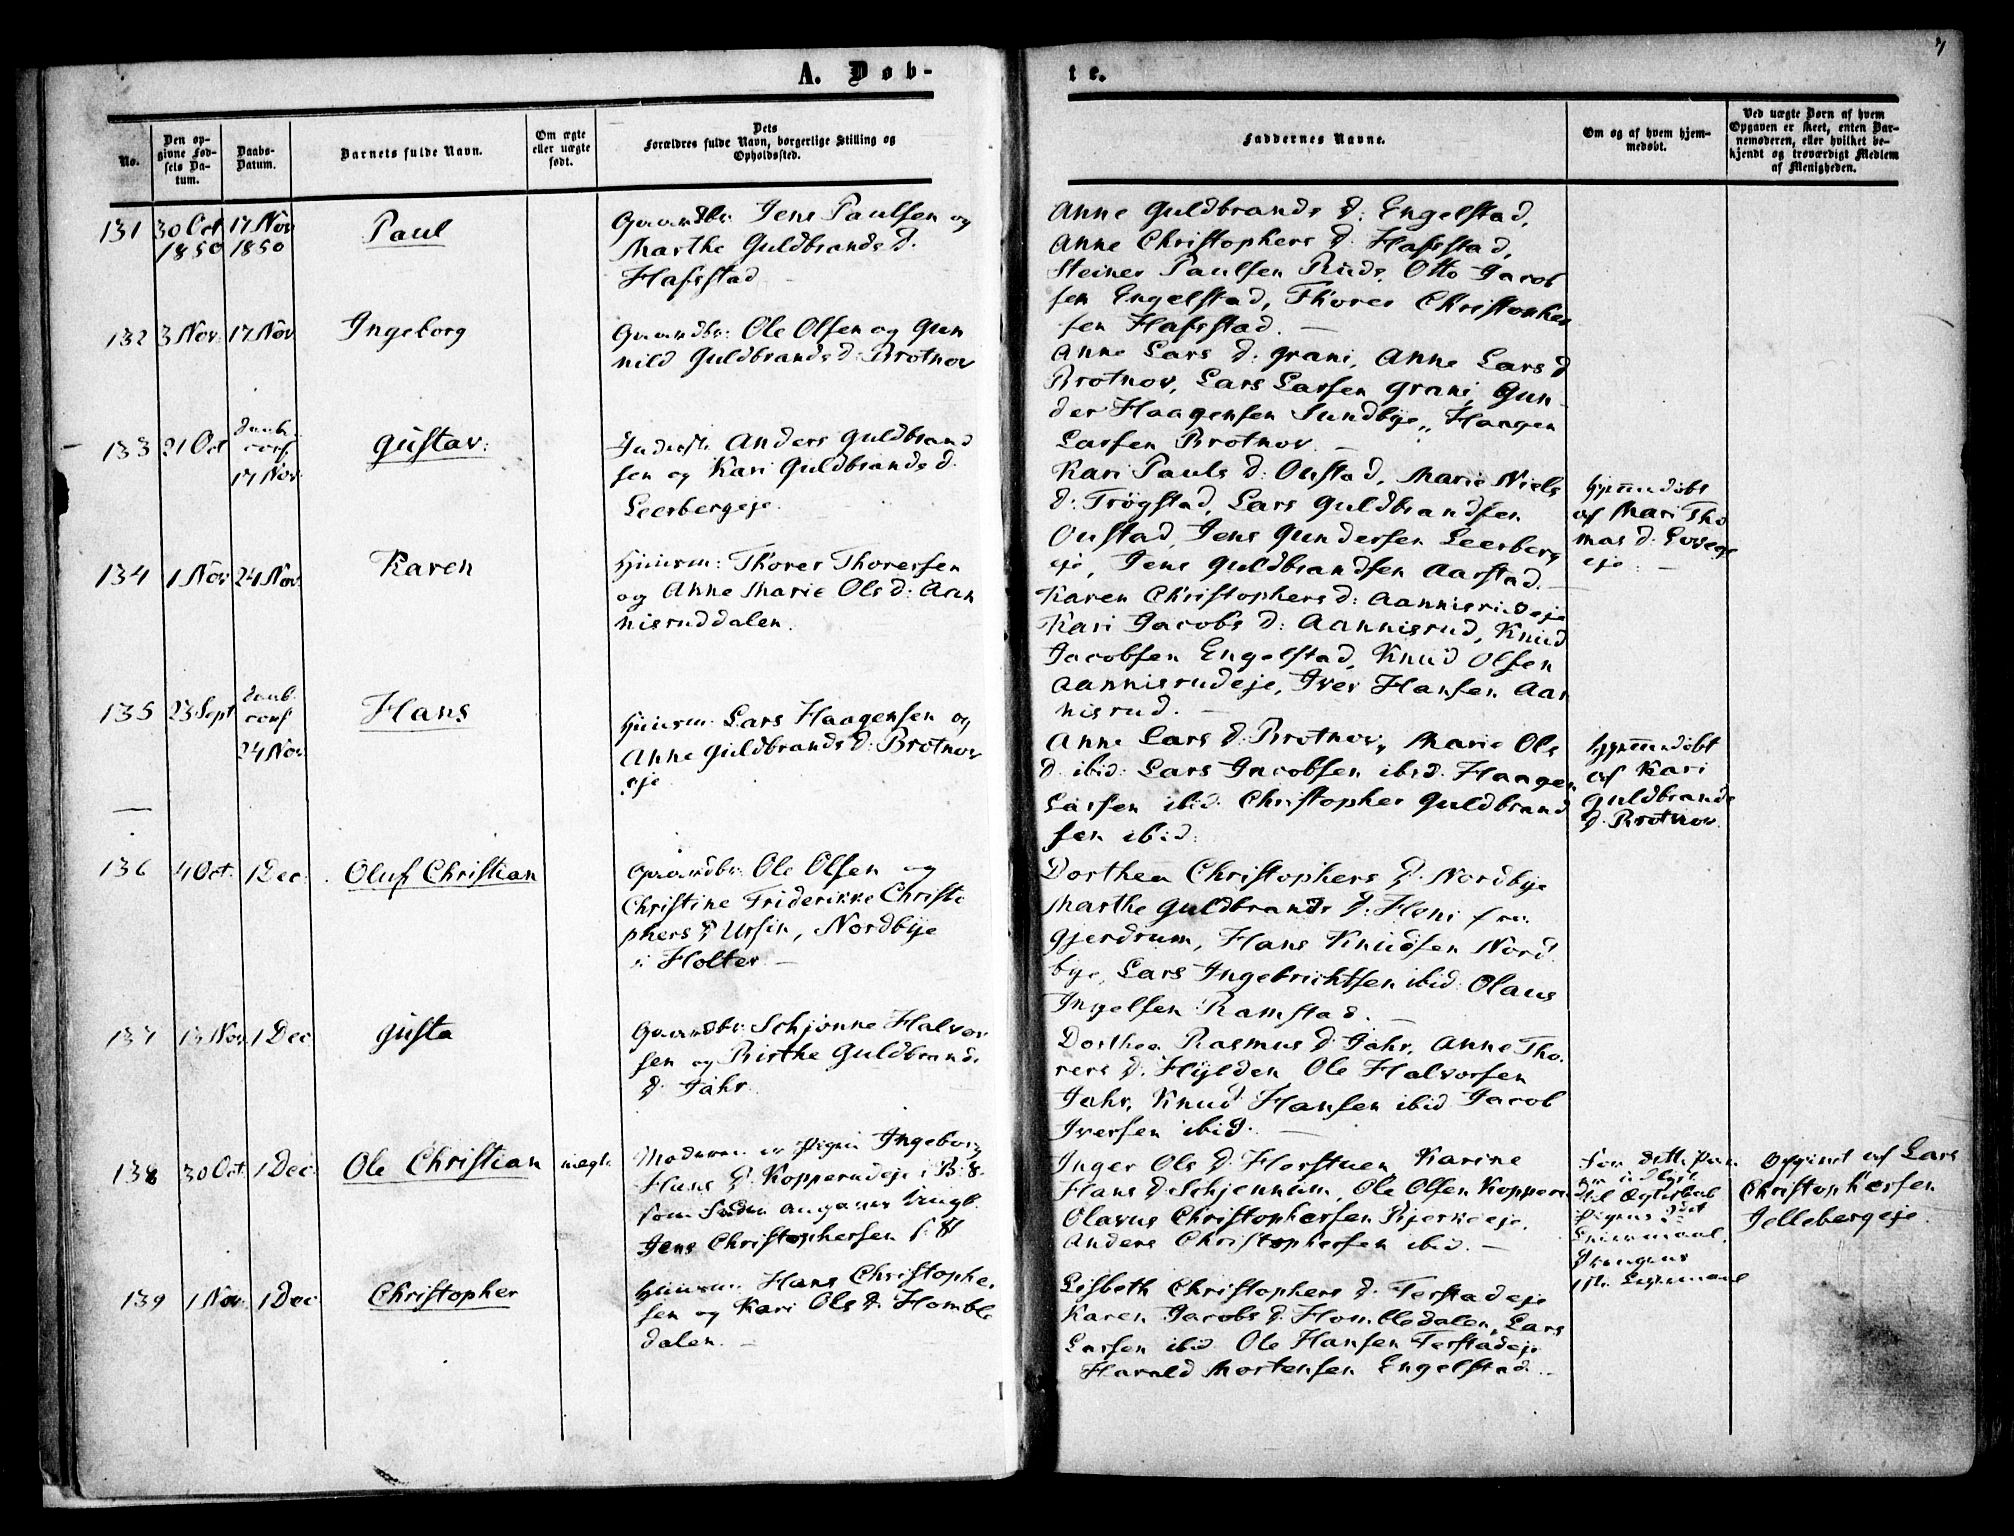 7
A. Døb-
te.
No.
Den op-
givne Fød-
sels Da-
tum.
Daabs-
Datum.
Barnets fulde Navn.
Om ægte
eller uægte
født.
Dets
Forældres fulde Navn, borgerlige Stilling og
Opholdssted.
Faddernes Navne.
Om og af hvem hjem-
medøbt.
Ved uægte Børn af hvem
Opgaven er skeet, enten Bar-
nemoderen, eller hvilket be-
kjendt og troværdigt Medlem
af Menigheden.
131
30 Oct
1850
17 Nov
1850
Paul
Gaardbr: Jens Paulsen og
Marthe Guldbrands d.
Hafsstad
Anne Guldbrands d: Engelstad,
Anne Christophers d. Hafsstad,
Steiner Paulsen Ruds, Otto Jacob
sen Engelstad, Thorer Christopher
sen Hafsstad.
132
3 Nov
17 Nov
Ingeborg
Gaardbr: Ole Olsen og Gun
nild Guldbrands d: Brotnov
Anne Lars d. Grani, Anne Lars d
Brotnov, Lars Larsen Grani, Gun
der Haagensen Sundbye, Haagen
Larsen Brotnov
133
21 Oct
Daab.
conf
17 Nov
Gustav:
Inderst: Anders Guldbrand
sen og Kari Guldbrands d.
Leerbergeje.
Kari Pauls d: Oustad, Marie Niels
d: Trøgstad, Lars Guldbrandsen
Oustad, Jens Gundersen Leerberg
eje, Jens Guldbrandsen Aarstad.
Hjemmedøbt
af Mari Tho
mas d:
eje
134
1 Nov
24 Nov
Karen
Huusm: Thorer Thorersen
og Anne Marie Ols d: Aan
nisruddalen.
Karen Christophers d: Aannisrudeje
Kari Jacobs d: Aannisrud, Knud
Jacobsen Engelstad, Knud Olsen
Aannisrudeje, Iver Hansen Aan
nisrud.
135
23 Sept
Daab.
conf
24 Nov
Hans
Huusm: Lars Haagensen og
Anne Guldbrands d: Brotnov
eje
Anne Lars d: Brotnov, Marie Ols
d. ibid: Lars Jacobsen ibid. Haagen
Larsen ibid. Christopher Guldbrand
sen ibid.
Hjemmedøbt
af Kari
Guldbrands
d. Brotnov.
136
4 Oct.
1 Dec.
Oluf Christian
Gaardbr: Ole Olsen og
Christine Friderikke Christo
phers d Ursin, Nordbye
i Holter
Dorthea Christophers d. Nordbye
Marthe Guldbrands d: Høni fra
Gjerdrum, Hans Knudsen Nord
bye, Lars Ingebrichtsen ibid: Olaus
Ingelsen Ramstad.
137
13 Nov.
1 Dec
Gusta
Gaardbr: Schjønne Halvor
sen og Birthe Guldbrands
d. Jahr.
Dorthea Rasmus d Jahr, Anne Tho
rers d. Hylden Ole Halvorsen
Jahr, Knud Hansen ibid Jacob
Iversen ibid.
138
30 Oct.
1 Dec
Ole Christian
uægte
Moderen er Pigen Ingeborg
Hans d. Kopperudeje i B: S.
som Fader angaves Ungk.
Jens Christophersen
Inger Ols d Horstuen Karine
Hans d. Schjennum, Ole Olsen Kopperu
Olavus Christophersen Bjerkeeje.
Anders Christophersen ibid.
For dette
Pigens
Leiermaal,
Drengens
1ste Leiermaal
Opgivet af Lars
Christophersen
Jellebergeje
139
1 Nov.
1 Dec
Christopher
Huusm: Hans Christopher
sen og Kari Ols d. Homble
dalen.
Lisbeth Christophers d. Ferstadeje
Karen Jacobs d. Hombledalen, Lars
Larsen ibid Ole Hansen Ferstadeje
Harald Mortensen Engelstad.